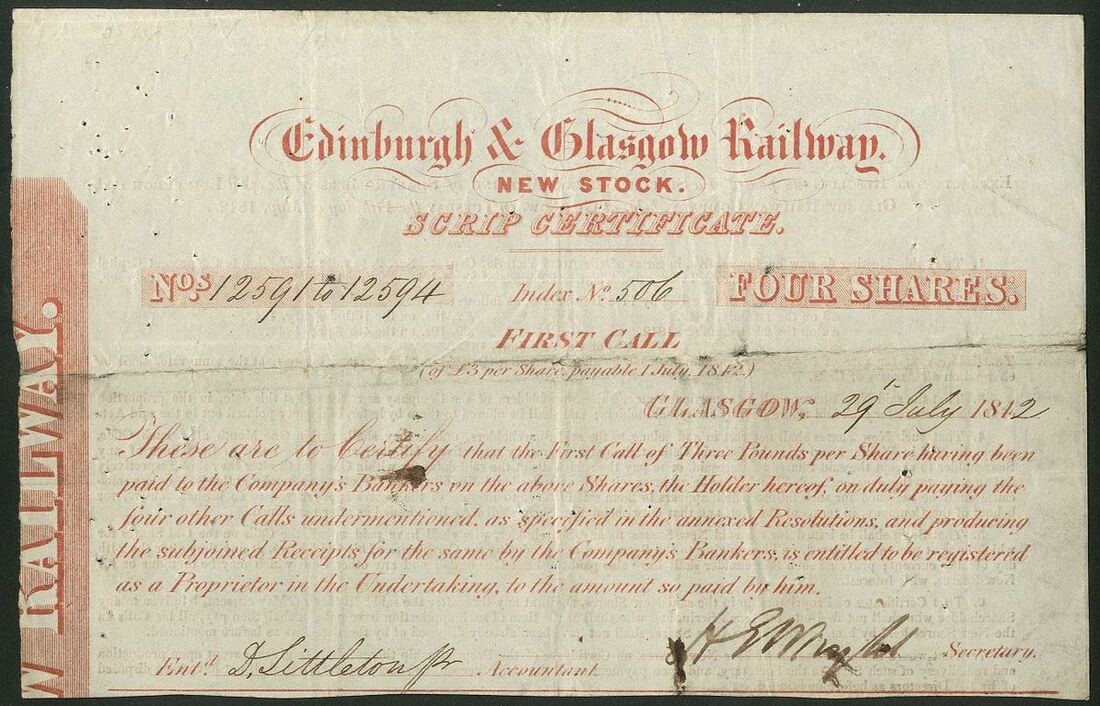 Edinburgh & Glasgow Railway.
NEW STOCK.
SCRIP CERTIFICATE.
Nos. 12591 to 12594 Index No. 506 FOUR SHARES.
FIRST CALL
(of £3 per Share, payable 1 July, 1842.)
GLASGOW, 29 July 1842
These are to Certify that the First Call of Three Pounds per Share having been
paid to the Company's Bankers on the above Shares, the Holder hereof, on duly paying the
four other Calls undermentioned, as specified in the annexed Resolutions, and producing
the subjoined Receipts for the same by the Company's Bankers, is entitled to be registered
as a Proprietor in the Undertaking, to the amount so paid by him.
Entd. D. Littleton Jr Accountant. Secretary.
W RAILWAY.